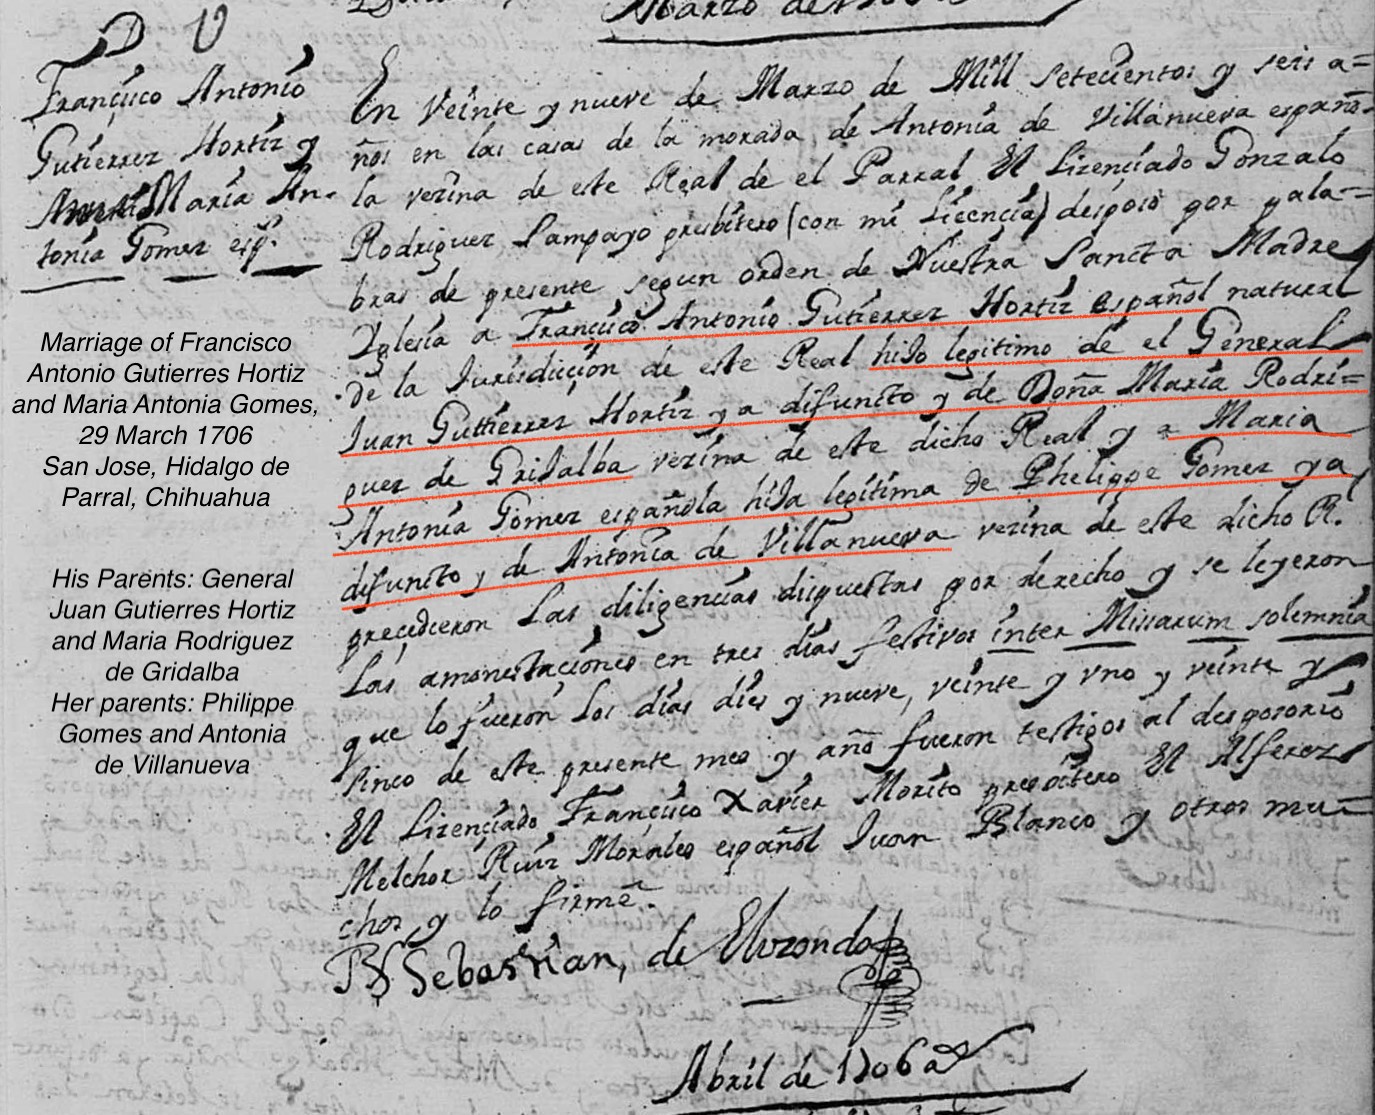 Marzo de
D V
Francisco Antonio
Gutierrez Hortiz y
Maria An-
tonia Gomez esp.
En Veinte y nueve de Marzo de Mill setecientos y seis a=
ños en las casas de la morada de Antonia de Villanueva españo-
la vezina de este Real de el Parral El Lizenciado Gonzalo
Rodriguez Sampayo presbitero (con mi Licencia) desposò por pala=
bras de presente segun orden de Nuestra Sancta Madre
Yglesia a Francisco Antonio Gutierrez Hortiz español natural
de la Jurisdiccion de este Real hijo legitimo de el General
Juan Gutierrez Hortiz ya difuncto y de Doña Maria Rodri=
guez de Grijalba vezina de este dicho Real y a Maria
Antonia Gomez española hija legitima de Phelippe Gomez ya
difuncto y de Antonia de Villanueva vezina de este dicho R.
precedieron Las diligencias dispuestas por derecho y se leyeron
Las amonestaciones en tres dias festivos inter Missarum solemnia
que lo fueron Los dias dies y nueve, veinte y uno y veinte y
sinco de este presente mes y año fueron testigos al desposorio
El Lizenciado Francisco Xavier Morito presbitero El Alferez
Melchor Ruiz Morales español Juan Blanco y otros mu=
chos y lo firmè.
Br Sebastian, de Elizondo
Abril de 1706 a
Marriage of Francisco
Antonio Gutierres Hortiz
and Maria Antonia Gomes,
29 March 1706
San Jose, Hidalgo de
Parral, Chihuahua
His Parents: General
Juan Gutierres Hortiz
and Maria Rodriguez
de Gridalba
Her parents: Philippe
Gomes and Antonia
de Villanueva